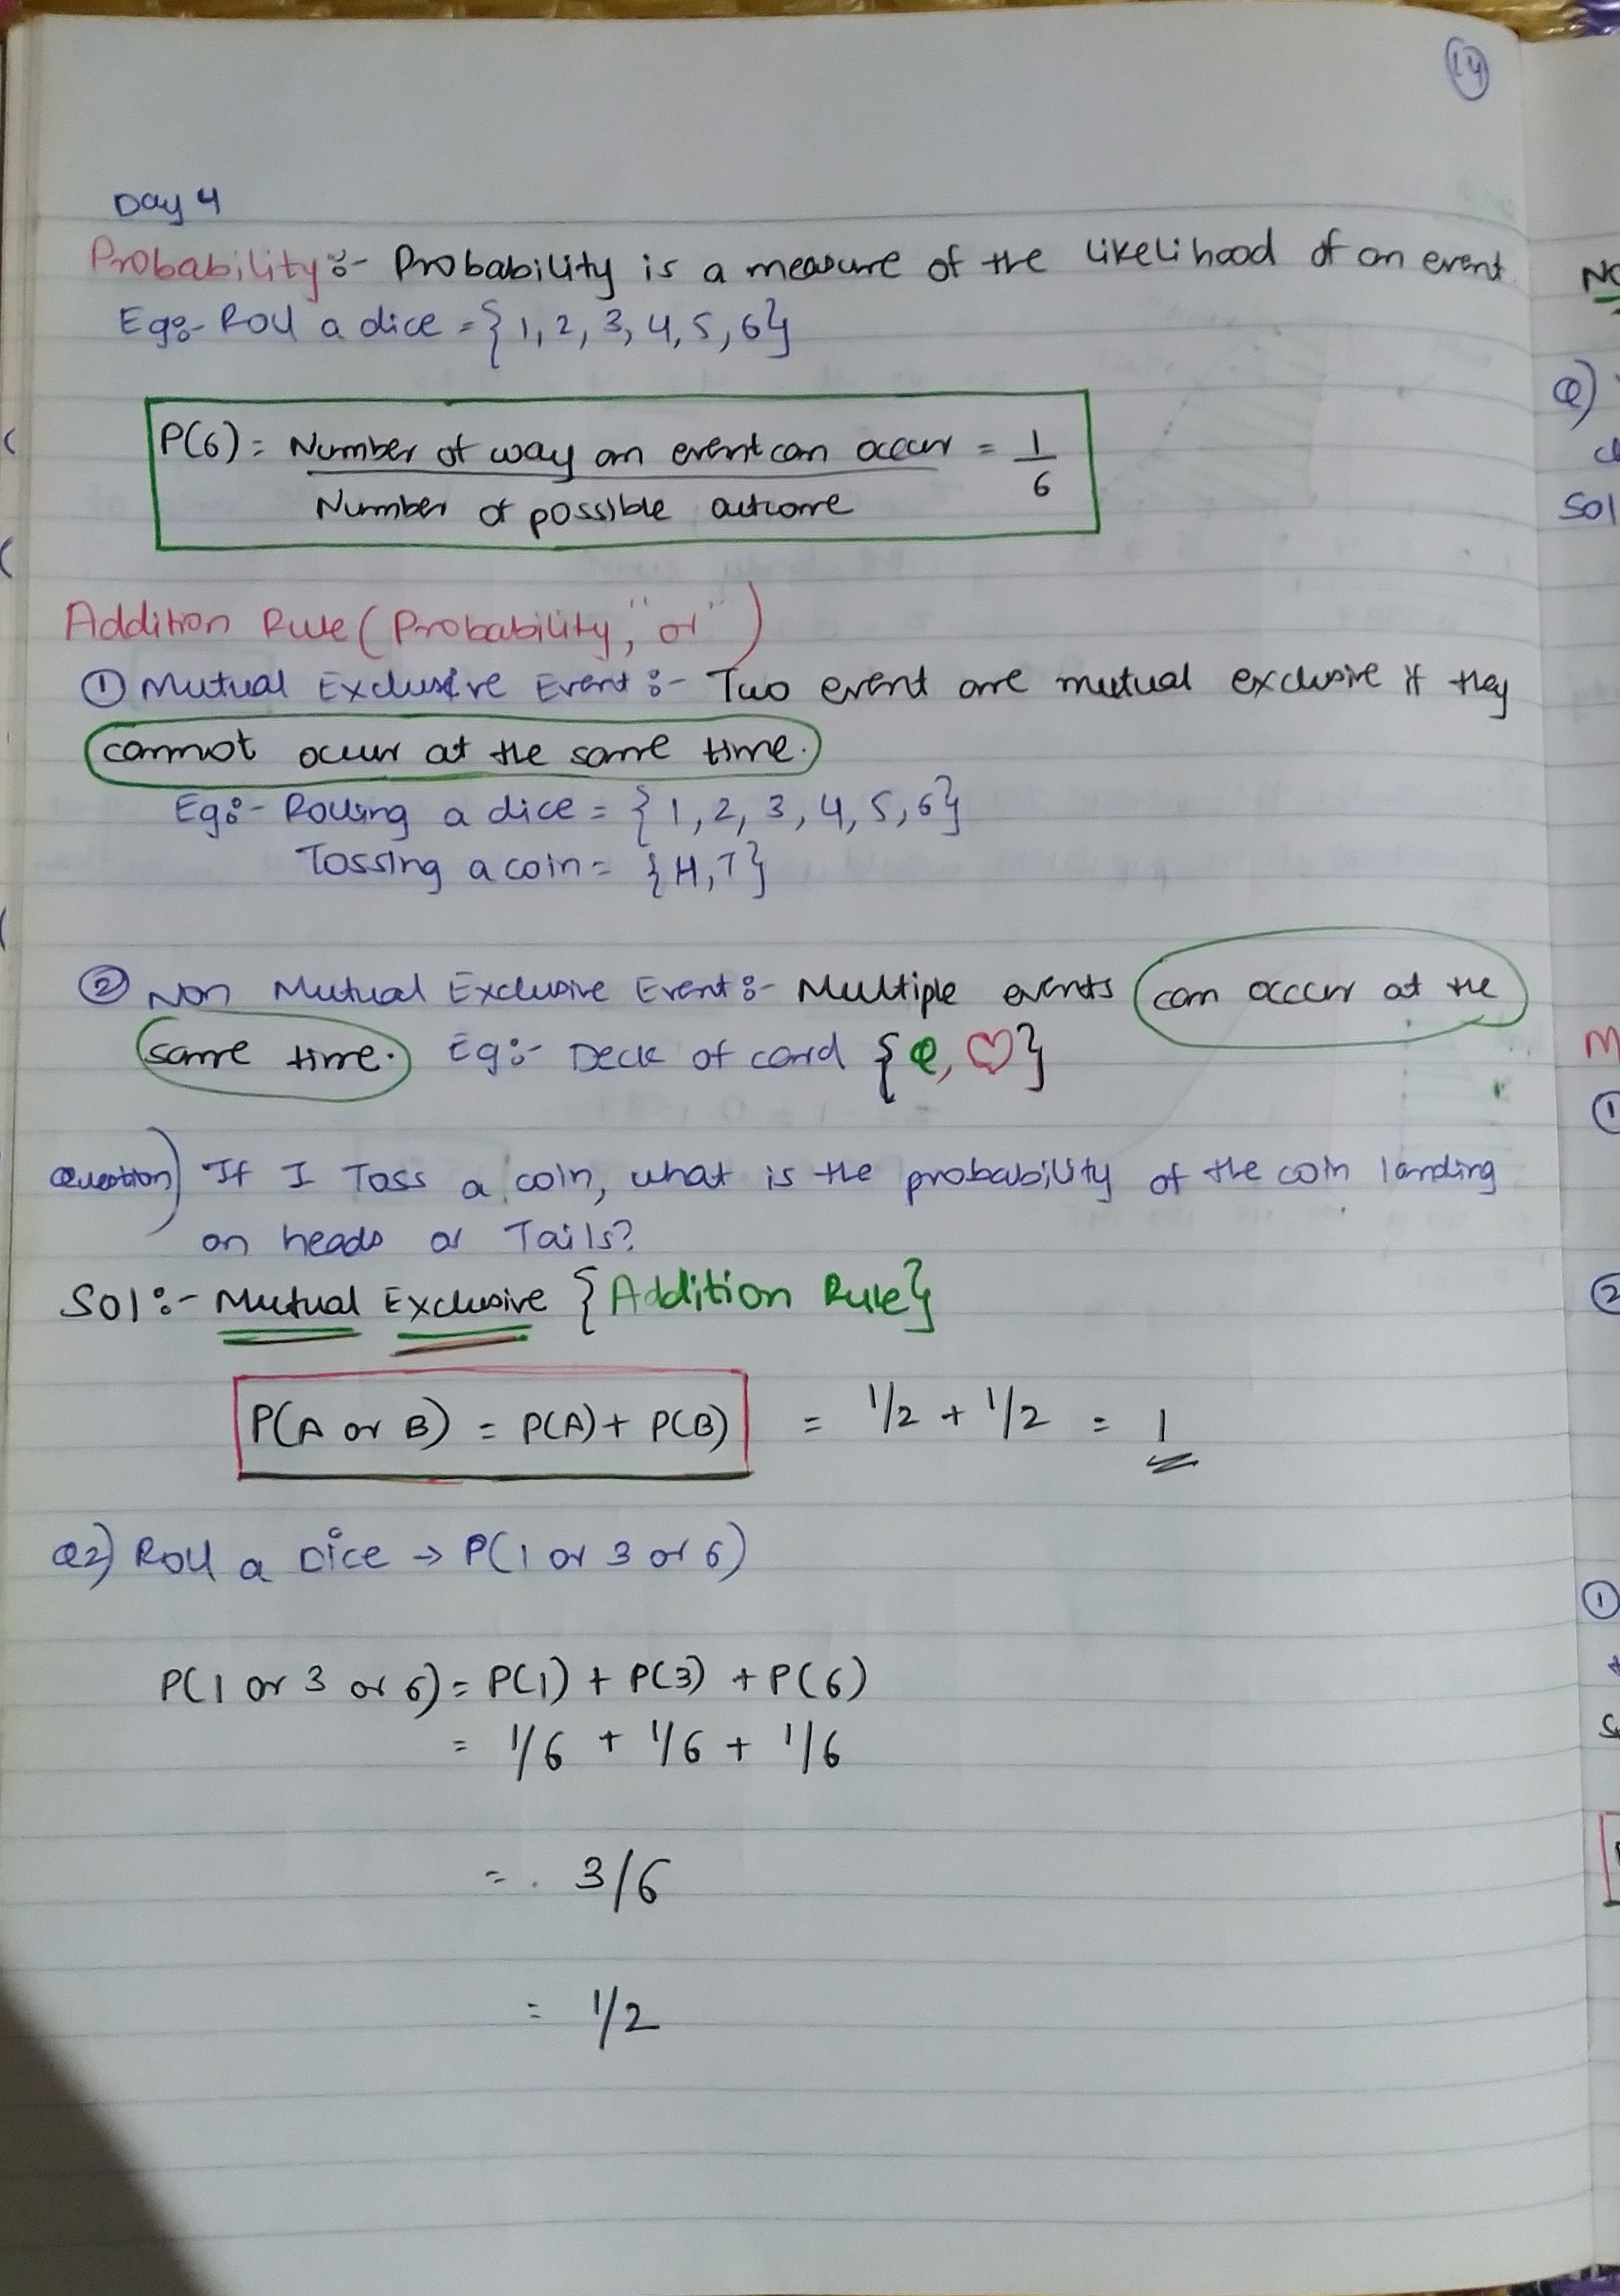 14
Day 4
Probability :- Probability is a measure of the likelihood of an event
Eg:- Roll a dice = {1, 2, 3, 4, 5, 6}
P(6) = Number of way an event can occur = 1
6
Number of possible outcome
Addition Rule (Probability, "or")
① Mutual Exclusive Event :- Two event are mutual exclusive if they
cannot occur at the same time.
Eg:- Rolling a dice = {1, 2, 3, 4, 5, 6}
Tossing a coin = {H, T}
② Non Mutual Exclusive Event :- Multiple events can occur at the
same time. Eg:- Deck of card {Q, ♡}
Question) If I Toss a coin, what is the probability of the coin landing
on heads or Tails?
Sol :- Mutual Exclusive {Addition Rule}
P(A or B) = P(A) + P(B) = 1/2 + 1/2 = 1
Q2) Roll a Dice → P(1 or 3 or 6)
P(1 or 3 or 6) = P(1) + P(3) + P(6)
= 1/6 + 1/6 + 1/6
= 3/6
= 1/2
Q)
Sol
①
②
①